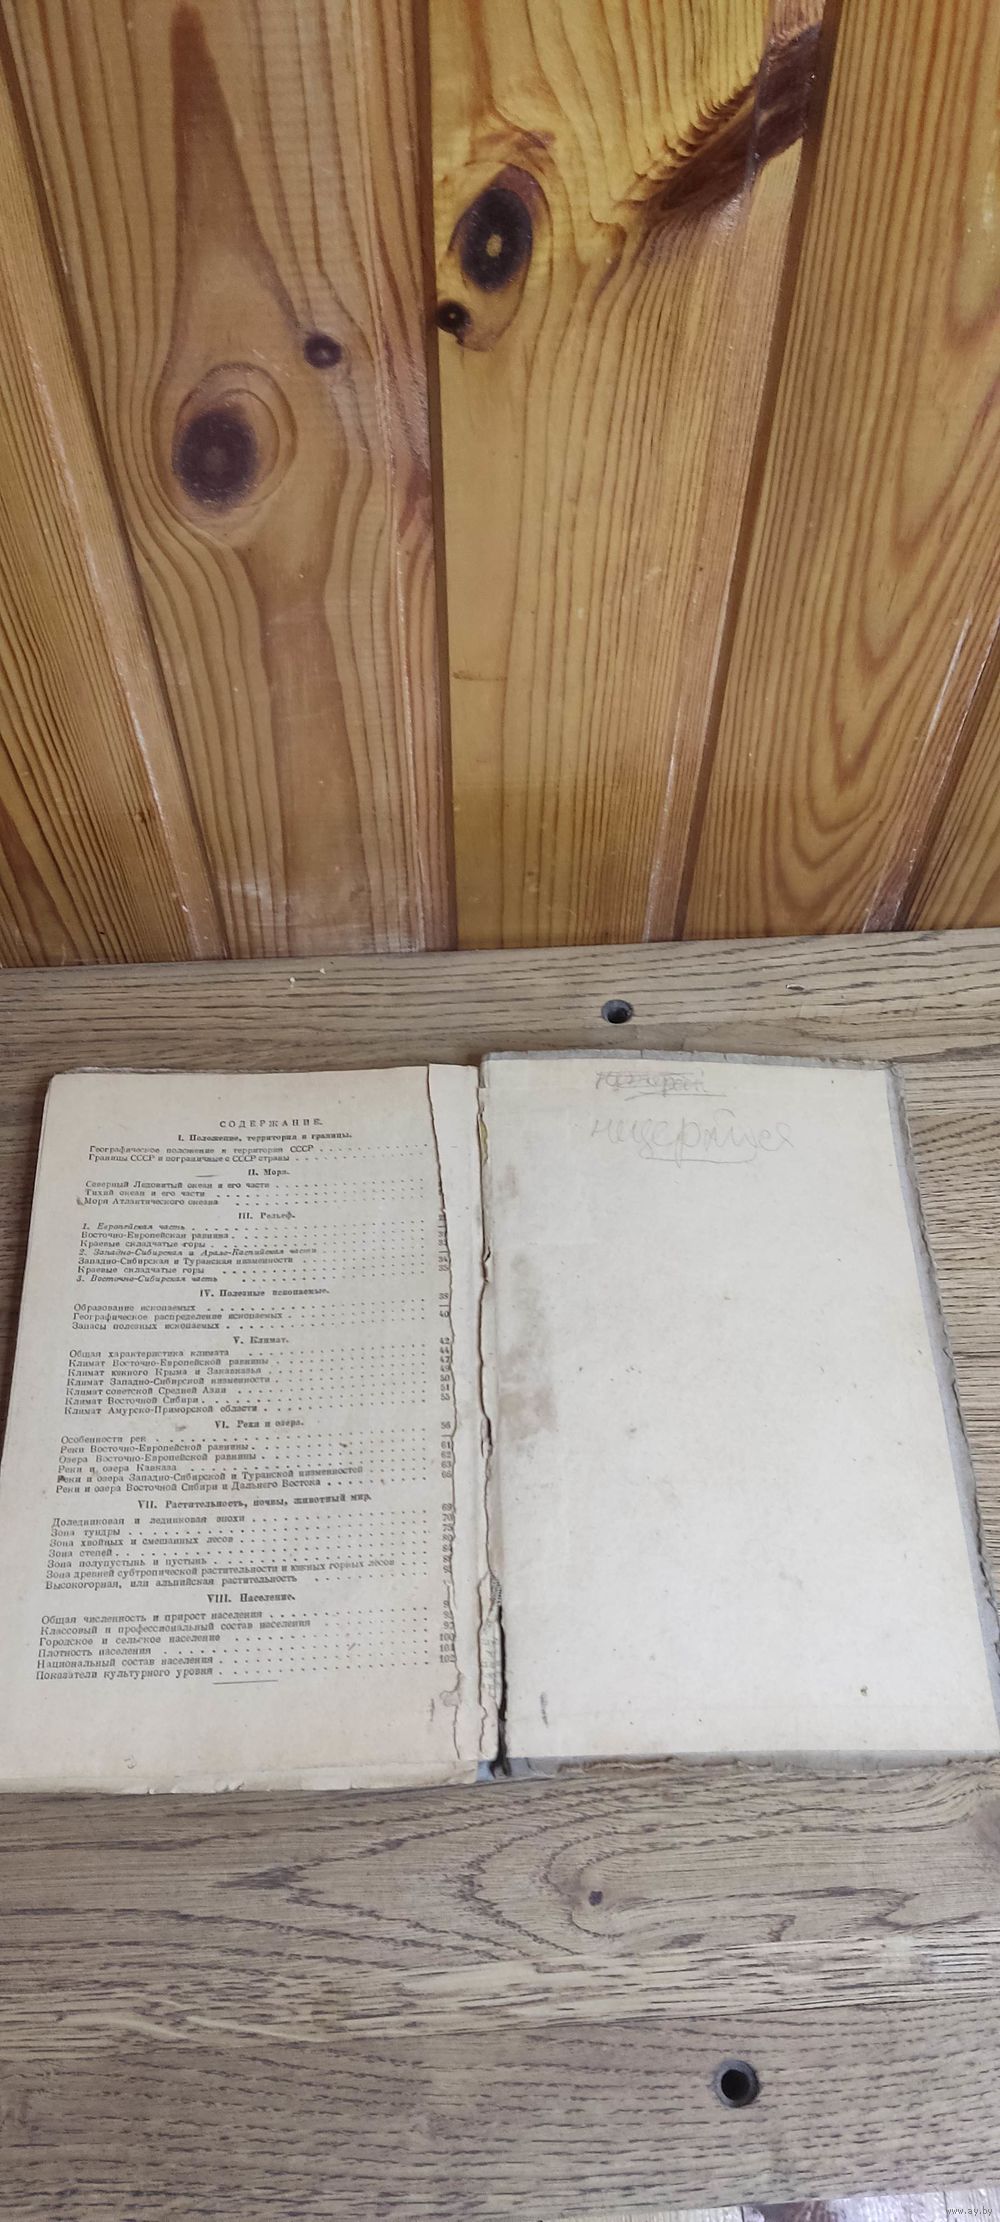 СОДЕРЖАНИЕ.
I. Положение, территория и границы.
Географическое положение и территория СССР
Границы СССР и пограничные с СССР страны
II. Моря.
Северный Ледовитый океан и его части
Тихий океан и его части
Моря Атлантического океана
III. Рельеф.
1. Европейская часть
Восточно-Европейская равнина
Краевые складчатые горы
2. Западно-Сибирская и Арало-Каспийская части
Западно-Сибирская и Туранская низменности
Краевые складчатые горы
3. Восточно-Сибирская часть
IV. Полезные ископаемые.
Образование ископаемых 38
Географическое распределение ископаемых 40
Запасы полезных ископаемых
V. Климат.
Общая характеристика климата 42
Климат Восточно-Европейской равнины 44
Климат южного Крыма и Закавказья 47
Климат Западно-Сибирской низменности 49
Климат советской Средней Азии 50
Климат Восточной Сибири 51
Климат Амурско-Приморской области 55
VI. Реки и озера.
Особенности рек 56
Реки Восточно-Европейской равнины
Озера Восточно-Европейской равнины 61
Реки и озера Кавказа 62
Реки и озера Западно-Сибирской и Туранской низменностей 63
Реки и озера Восточной Сибири и Дальнего Востока
VII. Растительность, почвы, животный мир.
Доледниковая и ледниковая эпохи 69
Зона тундры 70
Зона хвойных и смешанных лесов 75
Зона степей
Зона полупустынь и пустынь
Зона древней субтропической растительности и южных горных лесов
Высокогорная, или альпийская растительность
VIII. Население.
Общая численность и прирост населения
Классовый и профессиональный состав населения
Городское и сельское население
Плотность населения 100
Национальный состав населения 101
Показатели культурного уровня 102
www.ay.by